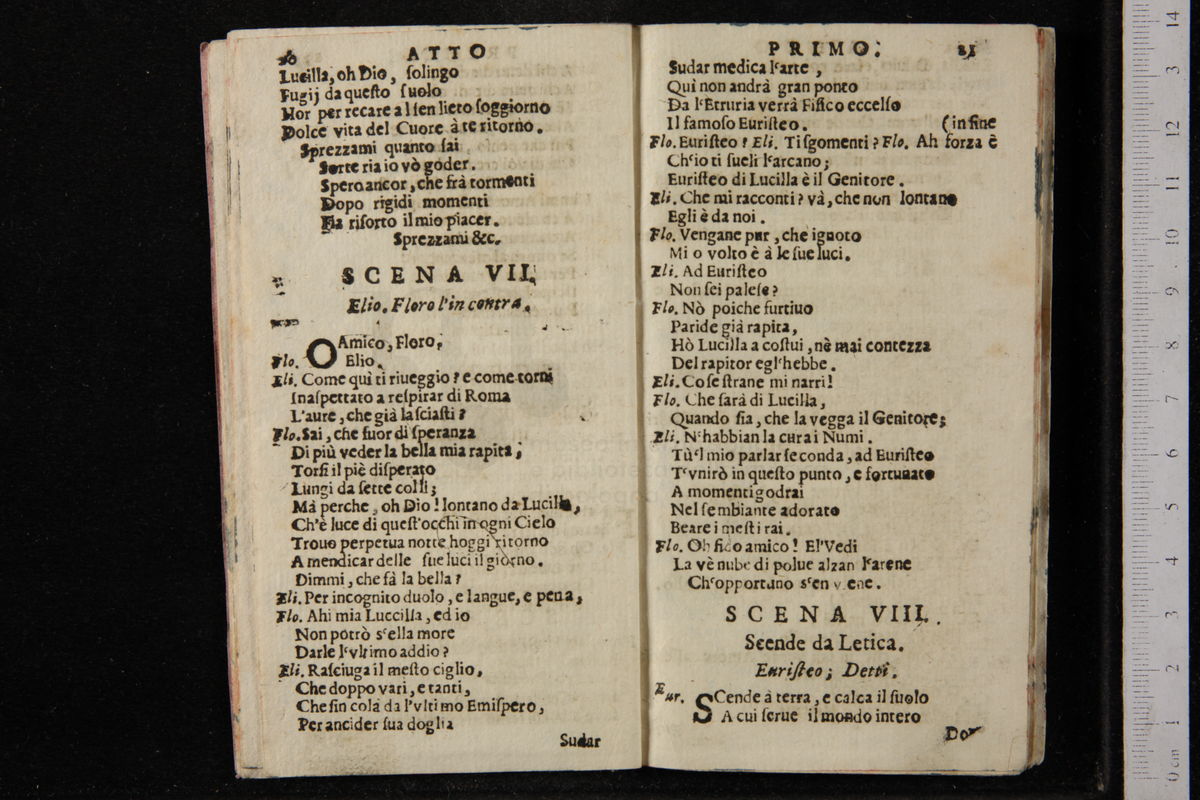 20 ATTO
Lucilla, oh Dio, ſolingo
Fugij da queſto ſuolo
Hor per recare al ſen lieto ſoggiorno
Dolce vita del Cuore à te ritorno.
Sprezzami quanto ſai
Sorte ria io vò goder.
Spero ancor, che frà tormenti
Dopo rigidi momenti
Fia riſorto il mio piacer.
Sprezzami &c.
SCENA VII.
Elio. Floro l'incontra.
O Amico, Floro,
Flo. Elio.
Eli. Come quì ti riueggio? e come torni
Inaſpettato a reſpirar di Roma
L'aure, che già laſciaſti?
Flo. Sai, che fuor di ſperanza
Di più veder la bella mia rapita,
Torſi il piè diſperato
Lungi da ſette colli;
Mà perche, oh Dio! lontano da Lucilla,
Ch'è luce di queſt'occhi in ogni Cielo
Trouo perpetua notte hoggi ritorno
A mendicar delle ſue luci il giorno.
Dimmi, che fà la bella?
Eli. Per incognito duolo, e langue, e pena,
Flo. Ahi mia Luccilla, ed io
Non potrò s'ella more
Darle l'vltimo addio?
Eli. Raſciuga il meſto ciglio,
Che doppo vari, e tanti,
Che ſin colà da l'vltimo Emiſpero,
Per ancider ſua doglia
Sudar
PRIMO. 21
Sudar medica l'arte,
Qui non andrà gran ponto
Da l'Etruria verrà Fiſico eccelſo
Il famoſo Euriſteo. (in fine
Flo. Euriſteo? Eli. Ti ſgomenti? Flo. Ah forza è
Ch'io ti ſueli l'arcano;
Euriſteo di Lucilla è il Genitore.
Eli. Che mi racconti? và, che non lontano
Egli è da noi.
Flo. Vengane pur, che ignoto
Mi o volto è à le ſue luci.
Eli. Ad Euriſteo
Non ſei paleſe?
Flo. Nò poiche furtiuo
Paride già rapita,
Hò Lucilla a coſtui, nè mai contezza
Del rapitor egl'hebbe.
Eli. Coſe ſtrane mi narri!
Flo. Che ſarà di Lucilla,
Quando fia, che la vegga il Genitore;
Eli. N'habbian la cura i Numi.
Tù'l mio parlar ſeconda, ad Euriſteo
T'vnirò in queſto punto, e fortunato
A momenti godrai
Nel ſembiante adorato
Beare i meſti rai.
Flo. Oh fido amico! El'Vedi
La vè nube di polue alzan l'arene
Ch'opportuno s'en viene.
SCENA VIII.
Scende da Letica.
Euriſteo; Detti.
Eur. SCende à terra, e calca il ſuolo
A cui ſerue il mondo intero
Do-